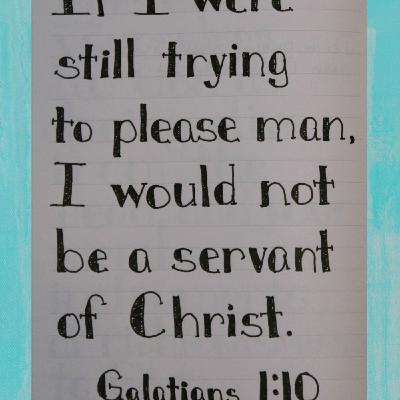 If I were
still trying
to please man,
I would not
be a servant
of Christ.
Galatians 1:10